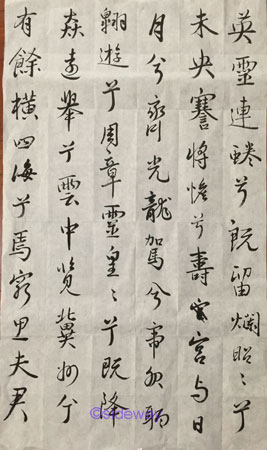 英靈連蜷兮既留爛昭々兮
未央謇將憺兮壽宮与日
月兮齊光龍駕兮帝服聊
翱遊兮周章靈皇々兮既降
猋遠舉兮雲中覽冀州兮
有餘橫四海兮焉窮思夫君